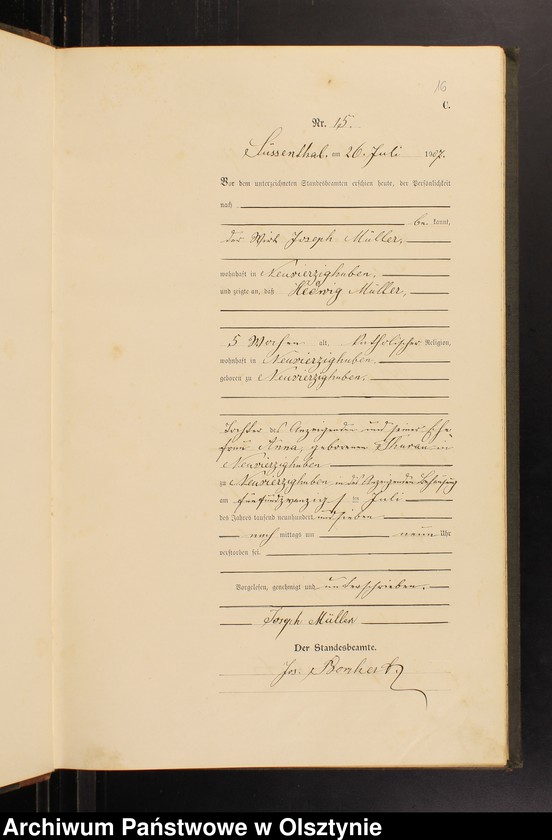 16
C.
Nr. 15.
Süssenthal, am 26. Juli 1907.
Vor dem unterzeichneten Standesbeamten erschien heute, der Persönlichkeit
nach
be kannt,
der Wirt Joseph Müller,
wohnhaft in Neuvierzighuben,
und zeigte an, daß Hedwig Müller,
5 Wochen alt, katholischer Religion,
wohnhaft in Neuvierzighuben,
geboren zu Neuvierzighuben,
Tochter des Anzeigenden und seiner Ehe
frau Anna, geborenen in
Neuvierzighuben
zu Neuvierzighuben in des Anzeigenden Behausung
am fünfundzwanzigsten Juli
des Jahres tausend neunhundert und sieben
nach mittags um neun Uhr
verstorben sei.
Vorgelesen, genehmigt und unterschrieben.
Joseph Müller
Der Standesbeamte.
Jos.
Archiwum Państwowe w Olsztynie